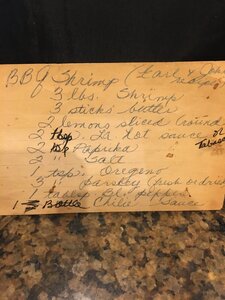 BBQ Shrimp (Earl & John
recipe
3 lbs. Shrimp
3 sticks butter
2 lemons sliced (round
2 tsp. La. hot sauce or
Tabasco
2 tsp Paprika
2 " Salt
1 tsp. Oregeno
3 " Parsley (fresh or dried
1 Bottle Chili Sauce